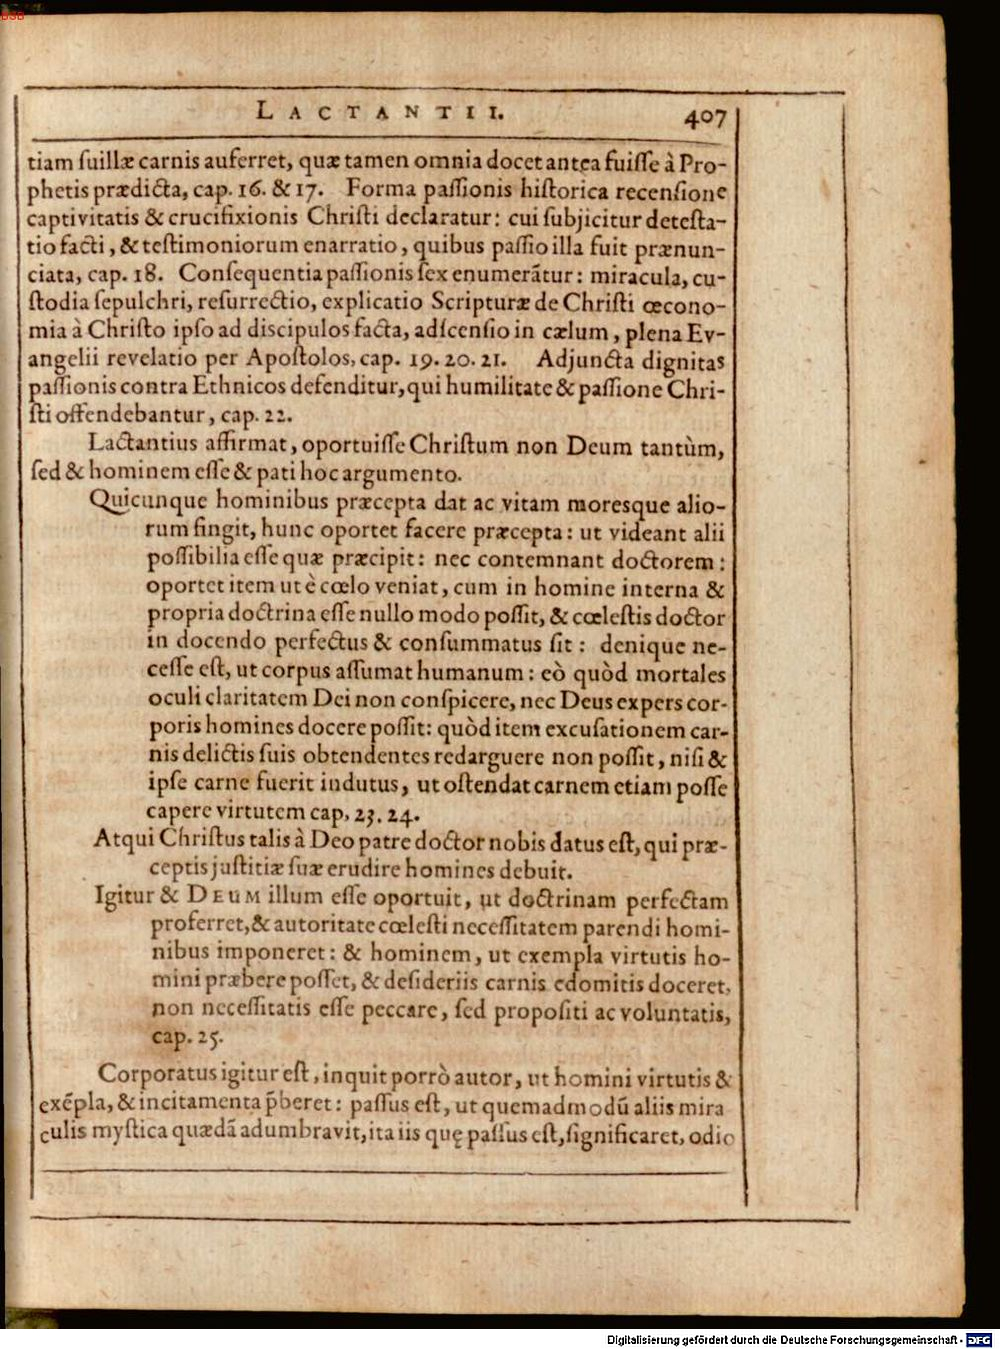 BSB
LACTANTII. 407
tiam ſuillæ carnis auferret, quæ tamen omnia docet antea fuiſſe à Pro-
phetis prædicta, cap. 16. & 17. Forma paſſionis hiſtorica recenſione
captivitatis & crucifixionis Chriſti declaratur: cui ſubjicitur deteſta-
tio facti, & teſtimoniorum enarratio, quibus paſſio illa fuit prænun-
ciata, cap. 18. Conſequentia paſſionis ſex enumerātur: miracula, cu-
ſtodia ſepulchri, reſurrectio, explicatio Scripturæ de Chriſti œcono-
mia à Chriſto ipſo ad diſcipulos facta, adſcenſio in cælum, plena Ev-
angelii revelatio per Apoſtolos, cap. 19. 20. 21. Adjuncta dignitas
paſſionis contra Ethnicos defenditur, qui humilitate & paſſione Chri-
ſti offendebantur, cap. 22.
Lactantius affirmat, oportuiſſe Chriſtum non Deum tantùm,
ſed & hominem eſſe & pati hoc argumento.
Quicunque hominibus præcepta dat ac vitam moresque alio-
rum fingit, hunc oportet facere præcepta: ut videant alii
poſſibilia eſſe quæ præcipit: nec contemnant doctorem:
oportet item ut è cœlo veniat, cum in homine interna &
propria doctrina eſſe nullo modo poſſit, & cœleſtis doctor
in docendo perfectus & conſummatus ſit: denique ne-
ceſſe eſt, ut corpus aſſumat humanum: eò quòd mortales
oculi claritatem Dei non conſpicere, nec Deus expers cor-
poris homines docere poſſit: quòd item excuſationem car-
nis delictis ſuis obtendentes redarguere non poſſit, niſi &
ipſe carne fuerit indutus, ut oſtendat carnem etiam poſſe
capere virtutem cap. 23. 24.
Atqui Chriſtus talis à Deo patre doctor nobis datus eſt, qui præ-
ceptis juſtitiæ ſuæ erudire homines debuit.
Igitur & DEUM illum eſſe oportuit, ut doctrinam perfectam
proferret, & autoritate cœleſti neceſſitatem parendi homi-
nibus imponeret: & hominem, ut exempla virtutis ho-
mini præbere poſſet, & deſideriis carnis edomitis doceret,
non neceſſitatis eſſe peccare, ſed propoſiti ac voluntatis,
cap. 25.
Corporatus igitur eſt, inquit porrò autor, ut homini virtutis &
exẽpla, & incitamenta p̃beret: paſſus eſt, ut quemadmodū aliis mira
culis myſtica quædā adumbravit, ita iis quę paſſus eſt, ſignificaret, odio
Digitalisierung gefördert durch die Deutsche Forschungsgemeinschaft - DFG